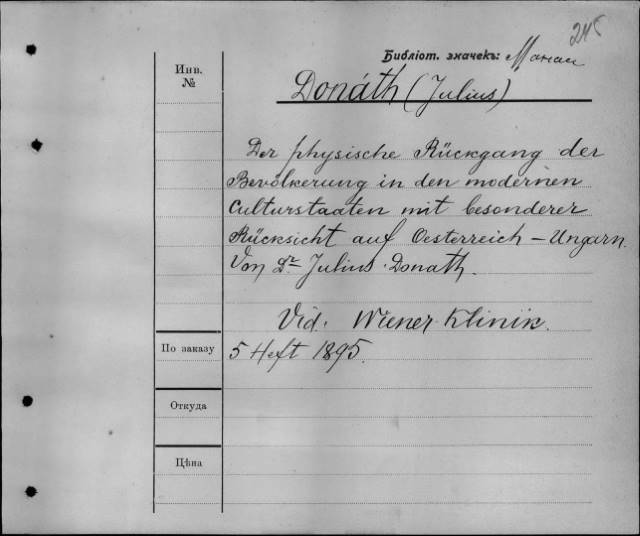 245
Библіот. значекъ:
Инв.
№
Donáth (Julius)
Der physische Rückgang der
Bevölkerung in den modernen
Culturstaaten mit besonderer
Rücksicht auf Oesterreich – Ungarn.
Von Dr Julius Donath.
Vid. Wiener Klinik.
По заказу
5 Heft 1895.
Откуда
Цѣна